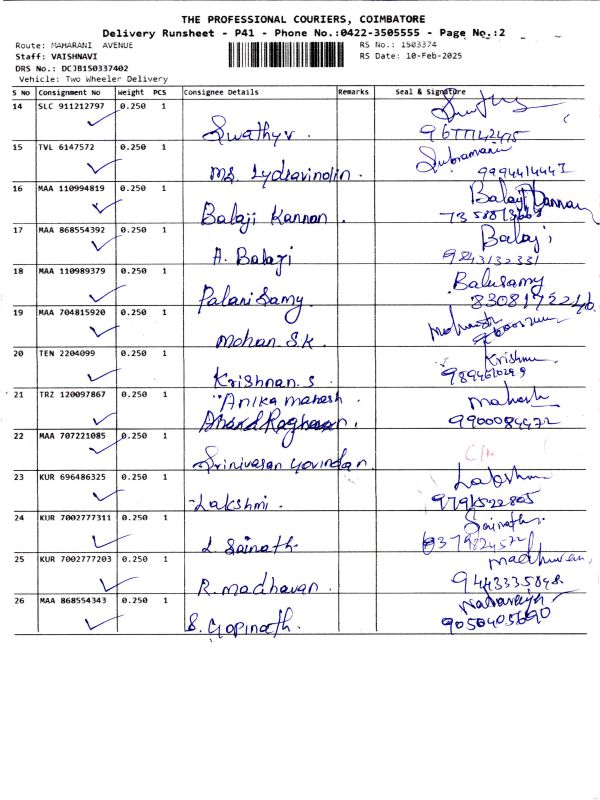 THE PROFESSIONAL COURIERS, COIMBATORE
Delivery Runsheet - P41 - Phone No.:0422-3505555 - Page No.:2
Route: MAHARANI AVENUE
RS No.: 1503374
Staff: VAISHNAVI
RS Date: 10-Feb-2025
DRS No.: DCJB150337402
Vehicle: Two Wheeler Delivery
S No Consignment No Weight PCS Consignee Details Remarks Seal & Signature
14 SLC 911212797 0.250 1
Swathy v. 9677142475
15 TVL 6147572 0.250 1 Subramani
Ms. Iydravindin. 9994414447
16 MAA 110994819 0.250 1 Balaji Kannan
Balaji Kannan.
17 MAA 868554392 0.250 1 Balaji
A. Balaji 9843132331
18 MAA 110989379 0.250 1 Balusamy
Palani Samy.
19 MAA 704815920 0.250 1
Mohan. S.K.
20 TEN 2204099 0.250 1 Krishna
Krishnan. S
21 TRZ 120097867 0.250 1 "Anika mahesh mahesh
Anand Raghavan. 9900084472
22 MAA 707221085 0.250 1
Srinivasan Govindan C/N
23 KUR 696486325 0.250 1 Lakshmi
Lakshmi. 9791522805
24 KUR 7002777311 0.250 1 Sainath
L. Sainath.
25 KUR 7002777203 0.250 1 madhavan
R. madhavan.
26 MAA 868554343 0.250 1
S. Gopinath. 9050405690